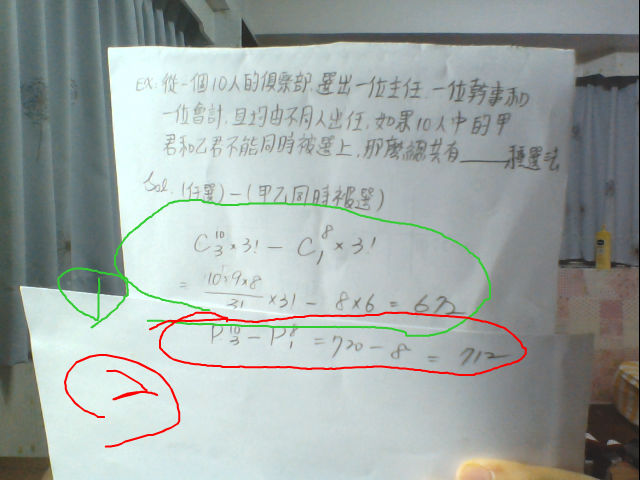 EX. 從一個10人的俱樂部,選出一位主任,一位幹事和
一位會計,且均由不同人出任,如果10人中的甲
君和乙君不能同時被選上,那麼總共有____種選法
Sol. (任選)-(甲乙同時被選)
C₃¹⁰×3! - C₁⁸×3!
1
= 10×9×8/3! ×3! - 8×6 = 672
P₃¹⁰ - P₁⁸ = 720-8 = 712
2